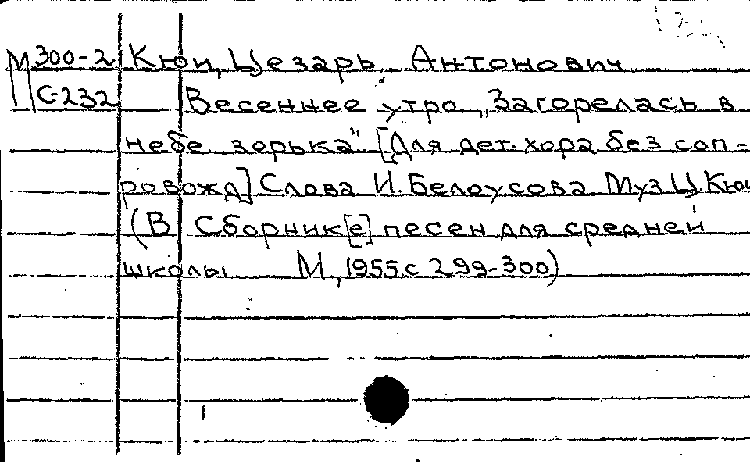 М 300-2 Кюи, Цезарь Антонович
С-232 Весеннее утро „Загорелась в
небе зорька" [Для дет. хора без соп-
ровожд] Слова И. Белоусова Муз Ц Кюи
(В Сборник[е] песен для средней
школы М, 1955 с 299-300)